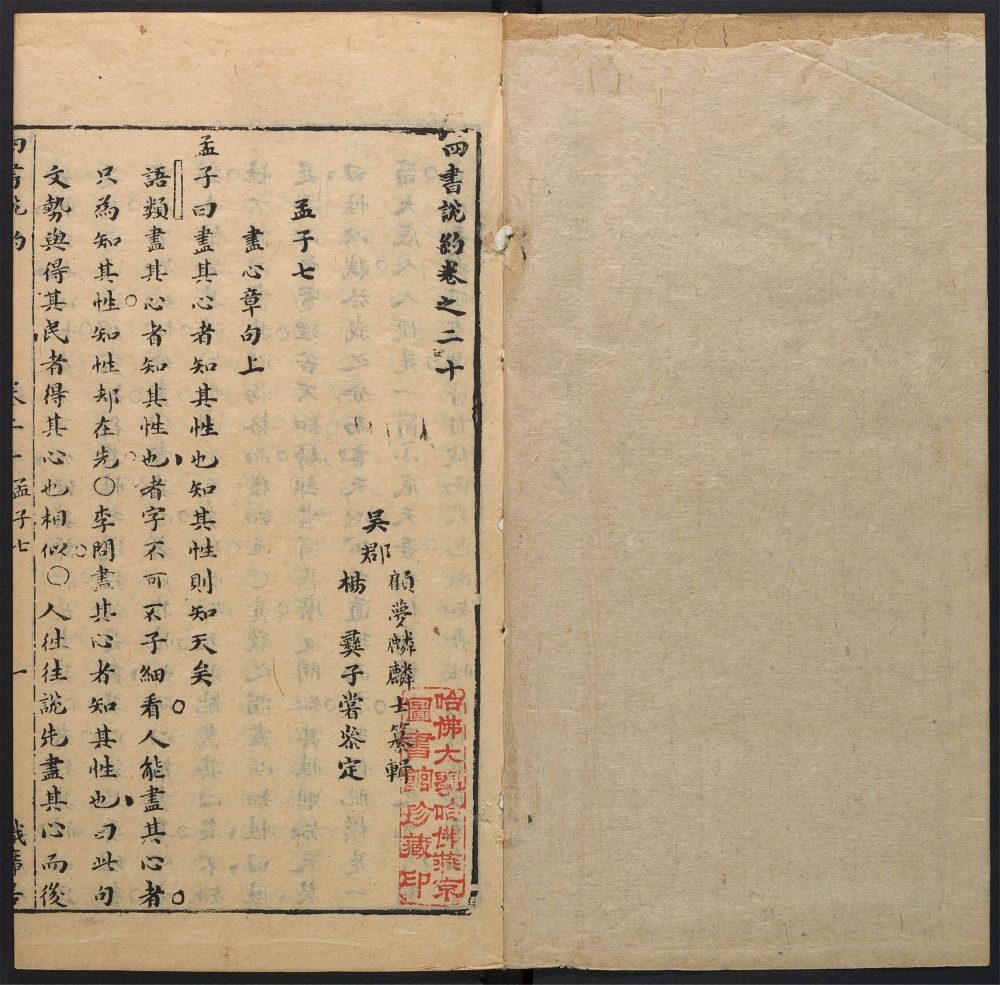 四書說約卷之二十
吳郡
顧夢麟麟士纂輯
楊彝子嘗叅定
孟子七
盡心章句上
孟子曰盡其心者知其性也知其性則知天矣
語類盡其心者知其性也者字不可不子細看人能盡其心者
只為知其性知性却在先〇李問盡其心者知其性也曰此句
文勢與得其民者得其心也相似〇人徃徃說先盡其心而後
四書說約
卷二十孟子七
一
織簾居
哈佛大學哈佛燕京
圖書館珍藏印